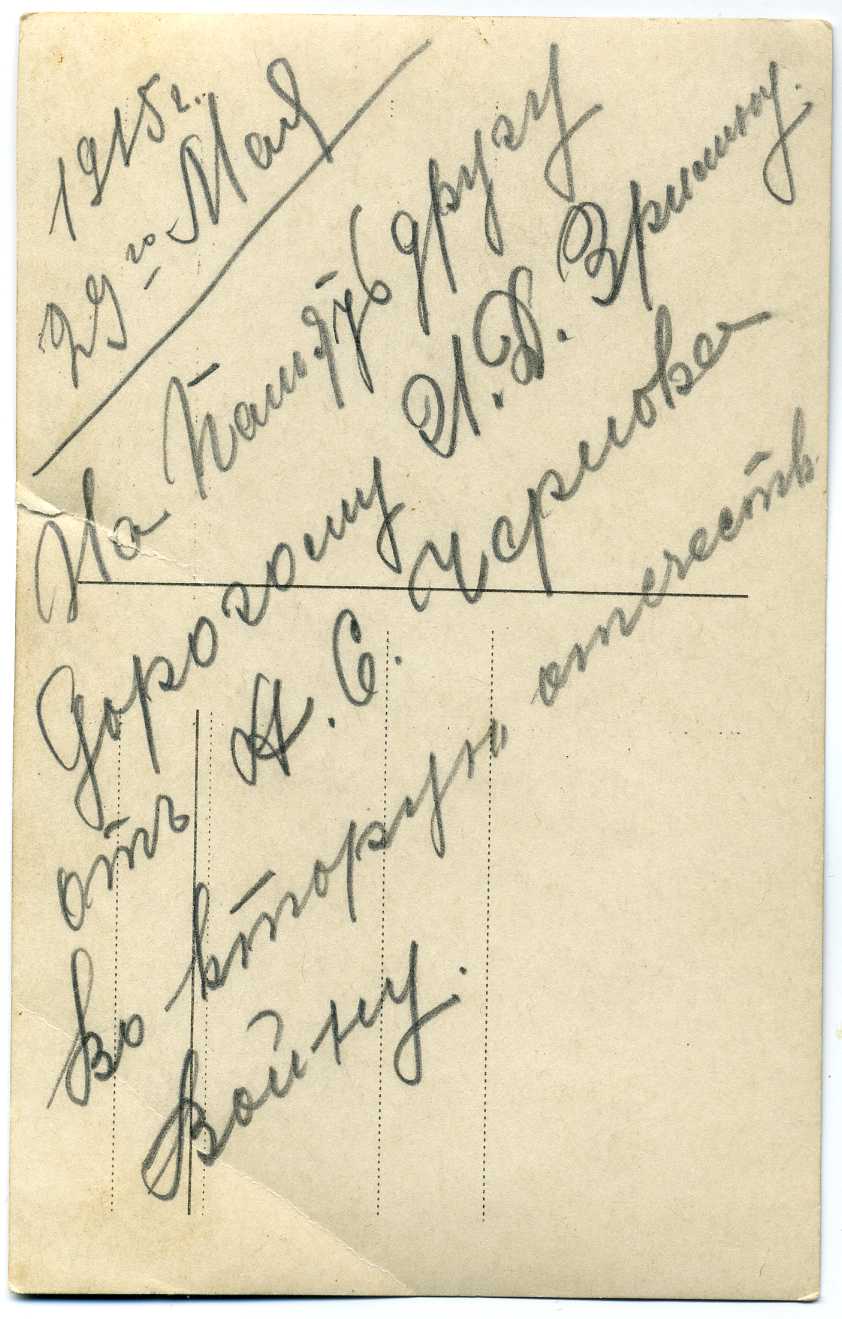 1915 г.
29го Мая
На Память другу
Дорогому И. Д. Зримину.
отъ А. С. Чернова
Во вторую отечеств.
Войну.